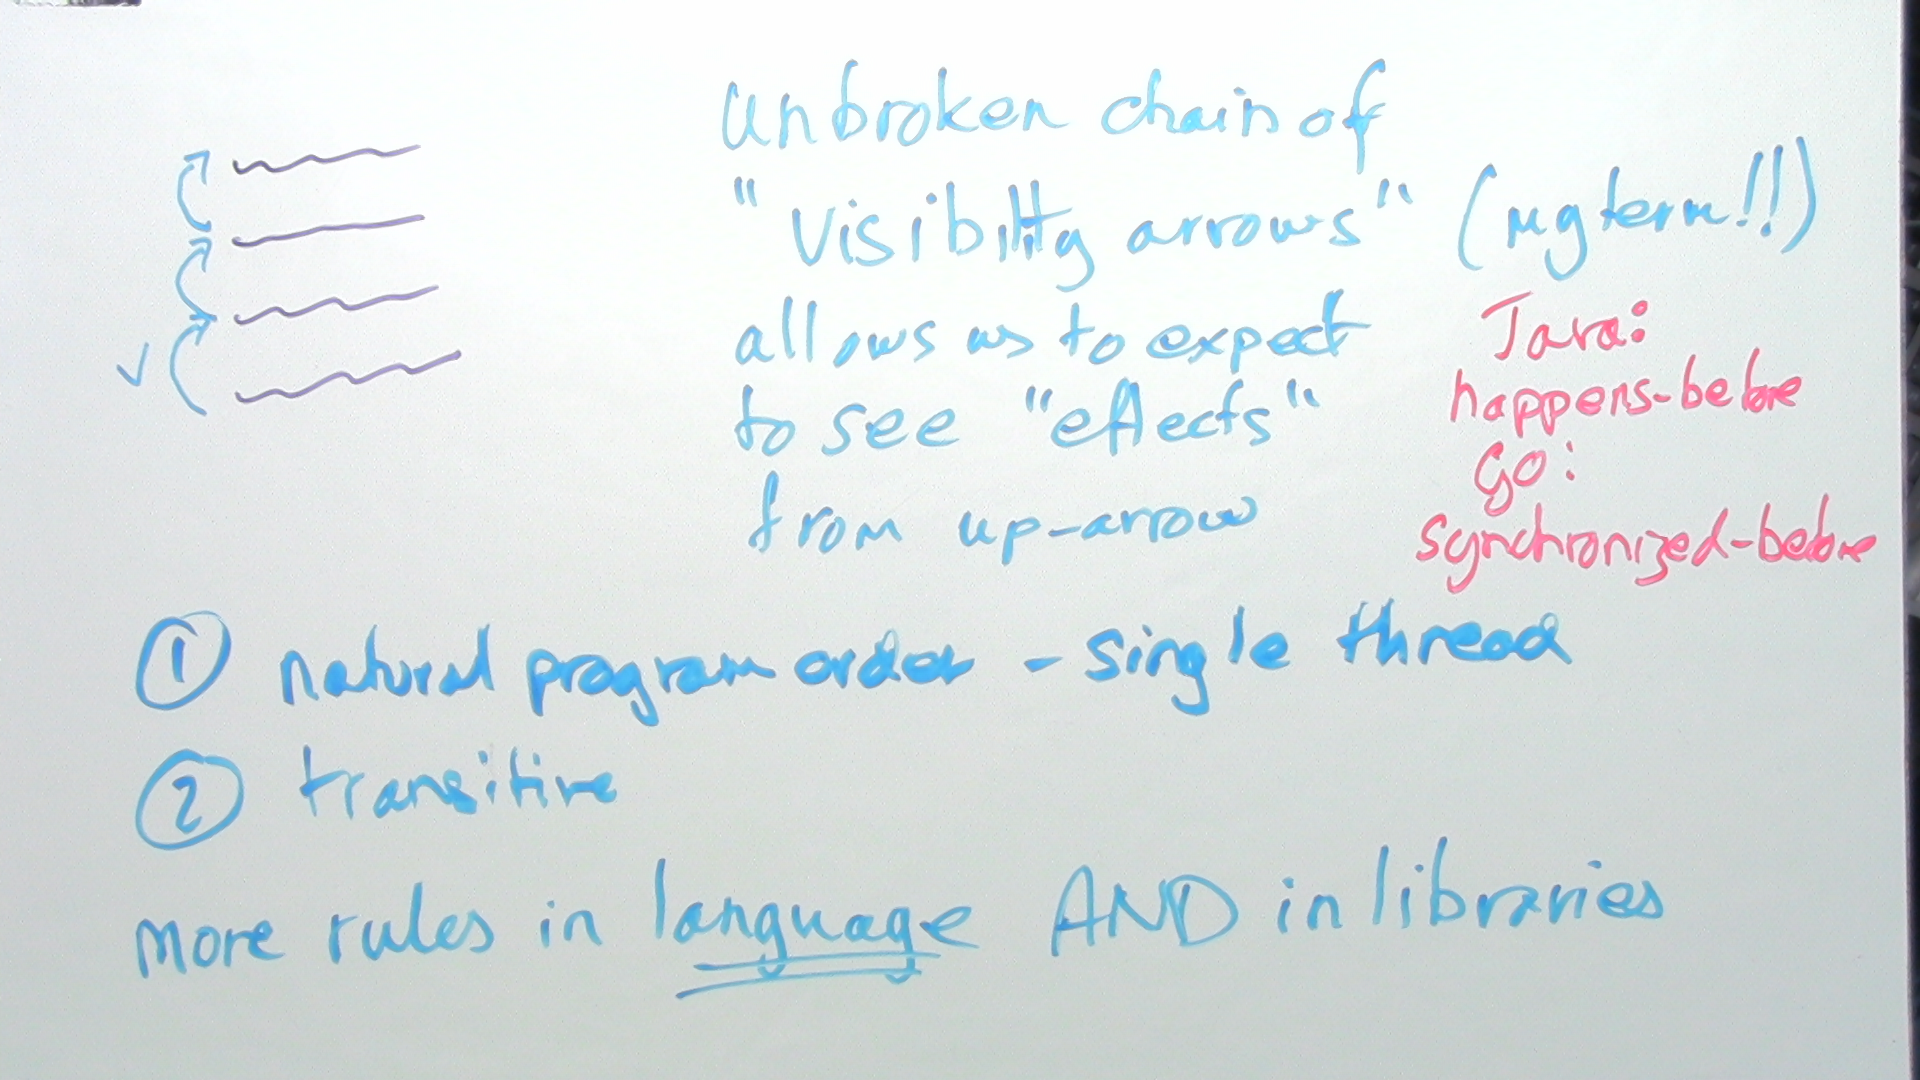 unbroken chain of
"visibility arrows" (my term!!)
allows us to expect
to see "effects"
from up-arrow
Java:
happens-before
Go:
synchronized-before
① natural program order - single thread
② transitive
More rules in language AND in libraries